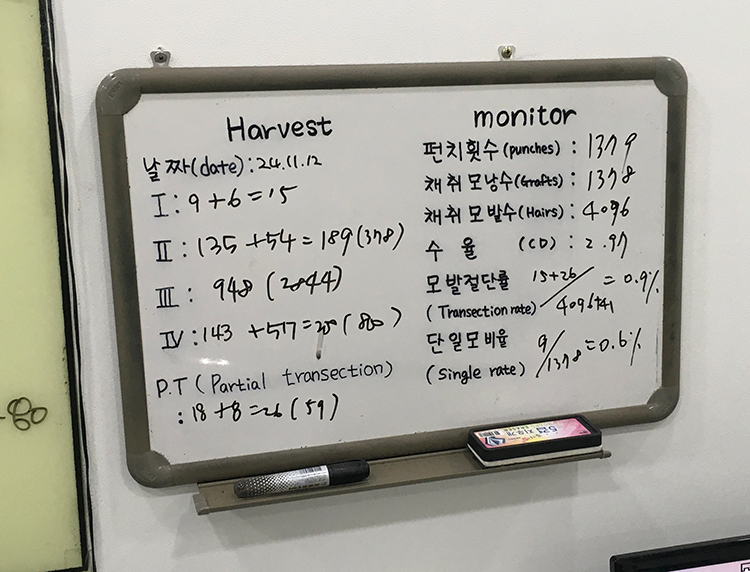 Harvest
날짜(date) : 24.11.12
I : 9 + 6 = 15
II : 135 + 54 = 189 (378)
III : 948 (2844)
IV : 143 + 57 = 200 (800)
P.T ( Partial transection)
: 18 + 8 = 26 (59)
monitor
펀치횟수(punches) : 1379
채취모낭수(Grafts) : 1378
채취모발수(Hairs) : 4096
수율 (CD) : 2.97
모발절단률 15+26/4096+41 = 0.9%
(Transection rate)
단일모비율 9/1378 = 0.6%
(Single rate)
-80